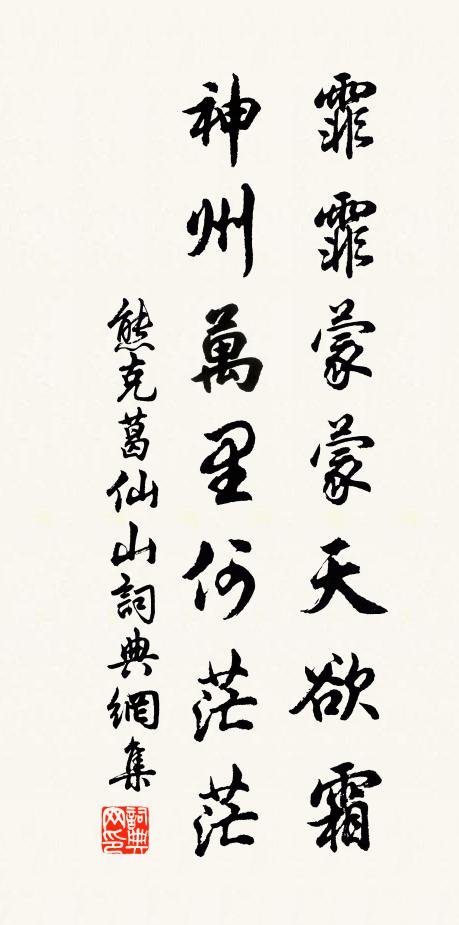 霏霏蒙蒙天欲霜
神州萬里何茫茫
熊克葛仙山詞典網集
詞典网印